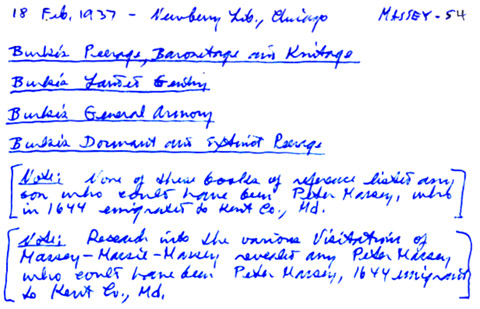 18 Feb. 1937 - Newberry Lib., Chicago MASSEY-54
Burke's Peerage, Baronetage and Knitage
Burke's Landed Gentry
Burke's General Armory
Burke's Dormant and Extinct Peerage
[Note: None of these books of reference listed any
son who could have been Peter Massey, who
in 1644 emigrated to Kent Co., Md.]
[Note: Research into the various Visitations of
Massey-Massie-Massy revealed any Peter Massey
who could have been Peter Massey, 1644 emigrant
to Kent Co., Md.]